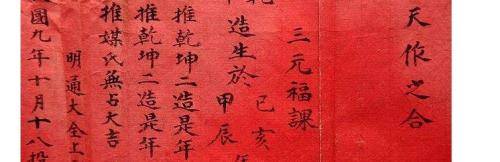 天作之合
三元福課
造生於
己亥年
甲辰
推乾坤二造是年
推乾坤二造是年
推媒氏無占大吉
明通大全上
國九年十月十八投